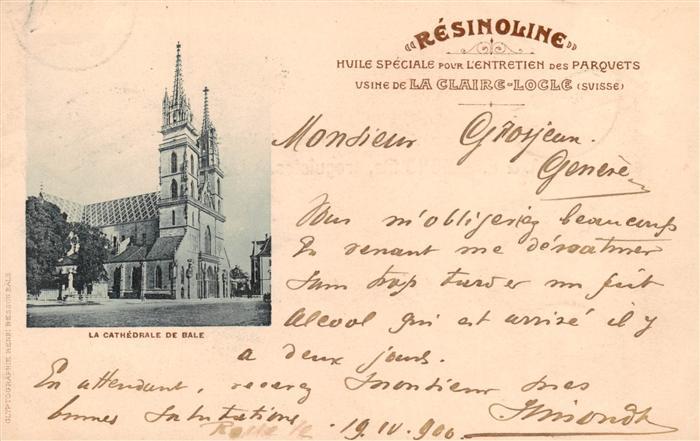 RÉSINOLINE
HUILE SPÉCIALE POUR L'ENTRETIEN DES PARQUETS
USINE DE LA CLAIRE-LOCLE (SUISSE)
Monsieur Grosjean.
Genève
Vous m'obligeriez beaucoup
en venant me
sans trop tarder un fût
alcool qui est arrivé il y
a deux jours.
En attendant, recevez Monsieur mes
bonnes salutations
19.IV.900
LA CATHÉDRALE DE BALE
GLYPTOGRAPHIE HENRI BESSON BÂLE